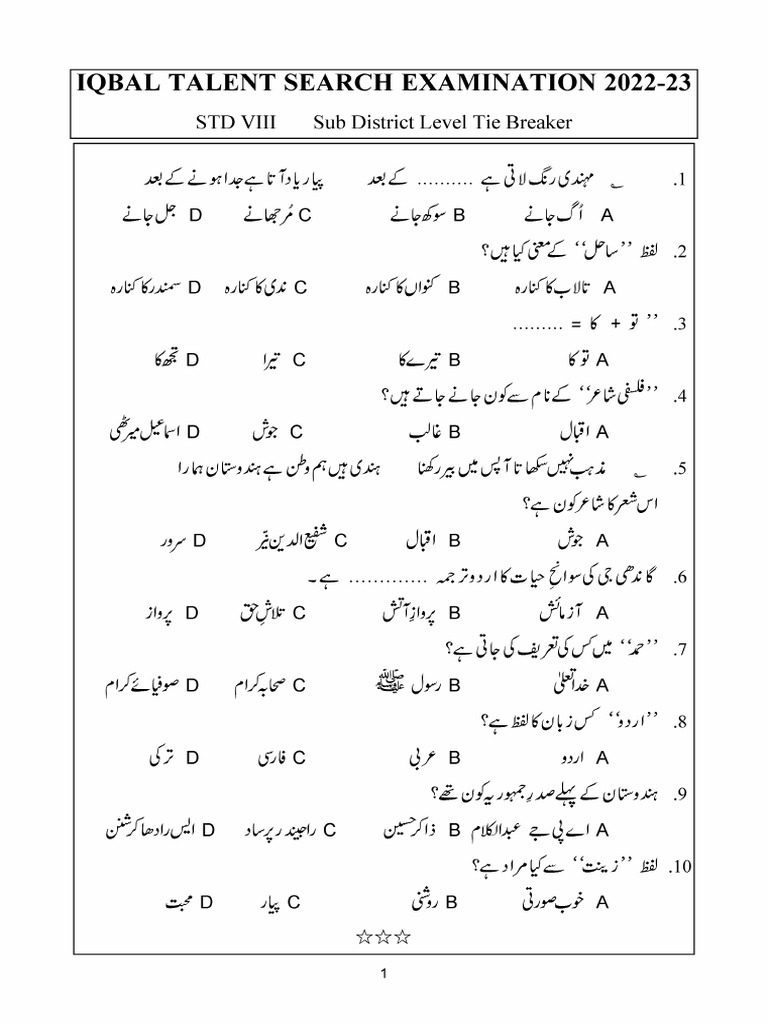 IQBAL TALENT SEARCH EXAMINATION 2022-23
STD VIII Sub District Level Tie Breaker
1. ؎ مہندی رنگ لاتی ہے .......... کے بعد پیار یاد آتا ہے جدا ہونے کے بعد
A اُگ جانے B سوکھ جانے C مُرجھانے D جل جانے
2. لفظ ’’ساحل‘‘ کے معنی کیا ہیں؟
A تالاب کا کنارہ B کنواں کا کنارہ C ندی کا کنارہ D سمندر کا کنارہ
3. ’’ تو + کا = .........
A تو کا B تیرے کا C تیرا D تجھ کا
4. ’’فلسفی شاعر‘‘ کے نام سے کون جانے جاتے ہیں؟
A اقبال B غالب C جوش D اسماعیل میرٹھی
5. ؎ مذہب نہیں سکھاتا آپس میں بیر رکھنا ہندی ہیں ہم وطن ہے ہندوستان ہمارا
اس شعر کا شاعر کون ہے؟
A جوش B اقبال C شفیع الدین نیّر D سرور
6. گاندھی جی کی سوانحِ حیات کا اردو ترجمہ ............. ہے۔
A آزمائش B پروازِ آتش C تلاشِ حق D پرواز
7. ’’حمد‘‘ میں کس کی تعریف کی جاتی ہے؟
A خدا تعلیٰ B رسول ﷺ C صحابہ کرام D صوفیائے کرام
8. ’’اردو‘‘ کس زبان کا لفظ ہے؟
A اردو B عربی C فارسی D ترکی
9. ہندوستان کے پہلے صدرِ جمہوریہ کون تھے؟
A اے پی جے عبدالکلام B ذاکر حسین C راجیندر پرساد D ایس رادھا کرشنن
10. لفظ ’’زینت‘‘ سے کیا مراد ہے؟
A خوب صورتی B روشنی C پیار D محبت
☆☆☆
1